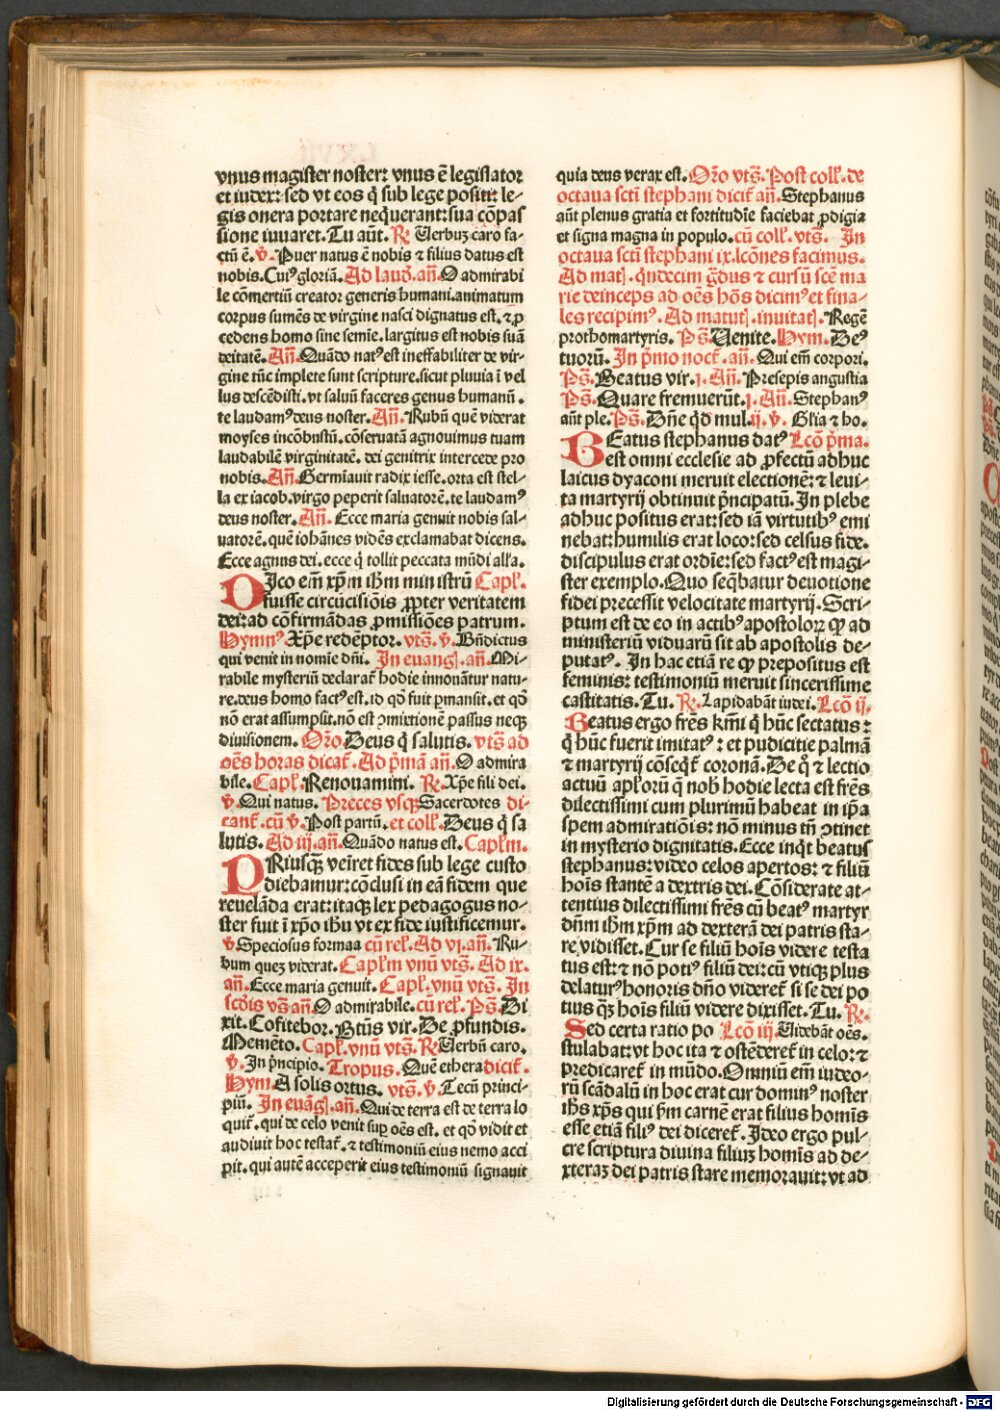 vnus magister noster: vnus ē legislator
et iudex: sed vt eos q̇ sub lege positi: le-
gis onera portare neq̈uerant: sua cōpas
sione iuuaret. Tu aūt. ℟ Uerbuꝫ caro fa-
ctū ē. ℣. Puer natus ē nobis ⁊ filius datus est
nobis. Cuiꝰ gloriā. Ad laud̄. añ. O admirabi
le cōmertiū creator generis humani. animatum
corpus sumēs de virgine nasci dignatus est. ⁊ ꝓ
cedens homo sine semīe. largitus est nobis suā
deitatē. Añ. Quādo natꝰ est ineffabiliter de vir-
gine tūc implete sunt scripture. sicut pluuia ī vel
lus descēdisti. vt saluū faceres genus humanū.
te laudamꝰ deus noster. Añ. Rubū quē viderat
moyses incōbustū. cōseruatā agnouimus tuam
laudabilē virginitatē. dei genitrix intercede pro
nobis. Añ. Germīauit radix iesse. orta est stel-
la ex iacob. virgo peperit saluatorē. te laudamꝰ
deus noster. Añ. Ecce maria genuit nobis sal-
uatorē. quē iohānes vidēs exclamabat dicens.
Ecce agnus dei. ecce q̇ tollit peccata mūdi all'a.
DIco em̄ xp̄m ih̄m ministrū Capl'.
fuisse circūcisiōis ꝓpter veritatem
dei: ad cōfirmādas ꝓmissiōes patrum.
Hymnꝰ Xp̄e redēptor. vts̄. ℣. Bn̄dictus
qui venit in nomīe dn̄i. In euangl'. añ. Mi-
rabile mysteriū declarat̄ hodie innouātur natu-
re. deus homo factꝰ est. id qō fuit ꝑmansit. et qō
nō erat assumpsit. nō est ꝯmixtionē passus neqꝫ
diuisionem. Or̄o. Deus q̇ salutis. vts̄ ad
oēs horas dicat̄. Ad p̄mā añ. O admira
bile. Capl'. Renouamini. ℟. Xp̄e fili dei.
℣. Qui natus. Preces vsqꝫ Sacerdotes di-
cant̄. cū ℣. Post partū. et coll'. Deus q̇ sa
lutis. Ad iij. añ. Quādo natus est. Capl'm.
PRiusqꝫ veniret fides sub lege custo
diebamur: cōclusi in eā fidem que
reuelāda erat: itaqꝫ lex pedagogus no-
ster fuit ī xp̄o ih̄u vt ex fide iustificemur.
℣ Speciosus formaa cū rel'. Ad vi. añ. Ru-
bum queꝫ viderat. Capl'm vnū vts̄. Ad ix.
añ. Ecce maria genuit. Capl'. vnū vts̄. In
scd̄is vs̄ añ. O admirabile. cū rel'. Ps̄. Di
xit. Cōfitebor. Bt̄us vir. De ꝓfundis.
Memēto. Capl'. vnū vts̄. ℟. Uerbū caro.
℣. In p̄ncipio. Tropus. Quē ethera dicit̄.
Hym. A solis ortus. vts̄. ℣. Tecū princi-
piū. In euāgl'. añ. Qui de terra est de terra lo
quit̄. qui de celo venit suꝑ oēs est. et qō vidit et
audiuit hoc testat̄. ⁊ testimoniū eius nemo acci
pit. qui autē acceperit eius testimoniū signauit
quia deus verax est. Or̄o vts̄. Post coll'. de
octaua sct̄i stephani dicit̄ añ. Stephanus
aūt plenus gratia et fortitudīe faciebat ꝓdigia
et signa magna in populo. cū coll'. vts̄. In
octaua sct̄i stephani ix. lcōnes facimus.
Ad mat'. q̇ndecim g̈dus ⁊ cursū sc̄e ma
rie deinceps ad oēs hōs dicimꝰ et fina-
les recipimꝰ. Ad matut'. inuitat'. Regē
prothomartyris. Ps̄. Uenite. Hym. De
tuorū. In p̄mo noct̄. añ. Qui em̄ corpori.
Ps̄. Beatus vir. j. Añ. Presepis angustia
Ps̄. Quare fremuerūt. j. Añ. Stephanꝰ
aūt ple. Ps̄. Dn̄e q̇d mul. ij. ℣. Gl'ia ⁊ ho.
BEatus stephanus datꝰ Lcō p̄ma.
est omni ecclesie ad ꝓfectū adhuc
laicus dyaconi meruit electionē: ⁊ leui-
ta martyrij obtinuit p̄ncipatū. In plebe
adhuc positus erat: sed iā virtutibꝰ emi
nebat: humilis erat loco: sed celsus fide.
discipulus erat ordīe: sed factꝰ est magi-
ster exemplo. Quo seq̄batur deuotione
fidei precessit velocitate martyrij. Scri-
ptum est de eo in actibꝰ apostoloꝝ ꝙ ad
ministeriū viduarū sit ab apostolis de-
putatꝰ. In hac etiā re ꝙ prepositus est
feminis: testimoniū meruit sincerissime
castitatis. Tu. ℟. Lapidabāt iudei. Lcō ij.
Beatus ergo fr̄es km̄i q̇ hūc sectatus:
q̇ hūc fuerit imitatꝰ: et pudicitie palmā
⁊ martyrij cōseq̄t̄ coronā. De q̇ ⁊ lectio
actuū apl'orū q̄ nob̄ hodie lecta est fr̄es
dilectissimi cum plurimū habeat in ip̄a
spem admiratiōis: nō minus tn̄ ꝯtinet
in mysterio dignitatis. Ecce inq̇t beatus
stephanus: video celos apertos: ⁊ filiū
hoīs stantē a dextris dei. Cōsiderate at-
tentius dilectissimi fr̄es cū beatꝰ martyr
dn̄m ih̄m xp̄m ad dexterā dei patris sta-
re vidisset. Cur se filiū hoīs videre testa
tus est: ⁊ nō potiꝰ filiū dei: cū vtiqꝫ plus
delaturꝰ honoris dn̄o videret̄ si se dei po
tius qꝫ hoīs filiū videre dixisset. Tu. ℟.
Sed certa ratio po Lcō iij. Uidebāt oēs.
stulabat: vt hoc ita ⁊ ostēderet̄ in celo: ⁊
predicaret̄ in mūdo. Omniū em̄ iudeo-
rū scādalū in hoc erat cur dominꝰ noster
ih̄s xp̄s qui ꝑm carnē erat filius homīs
esse etiā filiꝰ dei diceret̄. Ideo ergo pul-
cre scriptura diuina filiuꝫ homīs ad de-
xteraꝫ dei patris stare memorauit: vt ad
Digitalisierung gefördert durch die Deutsche Forschungsgemeinschaft - DFG